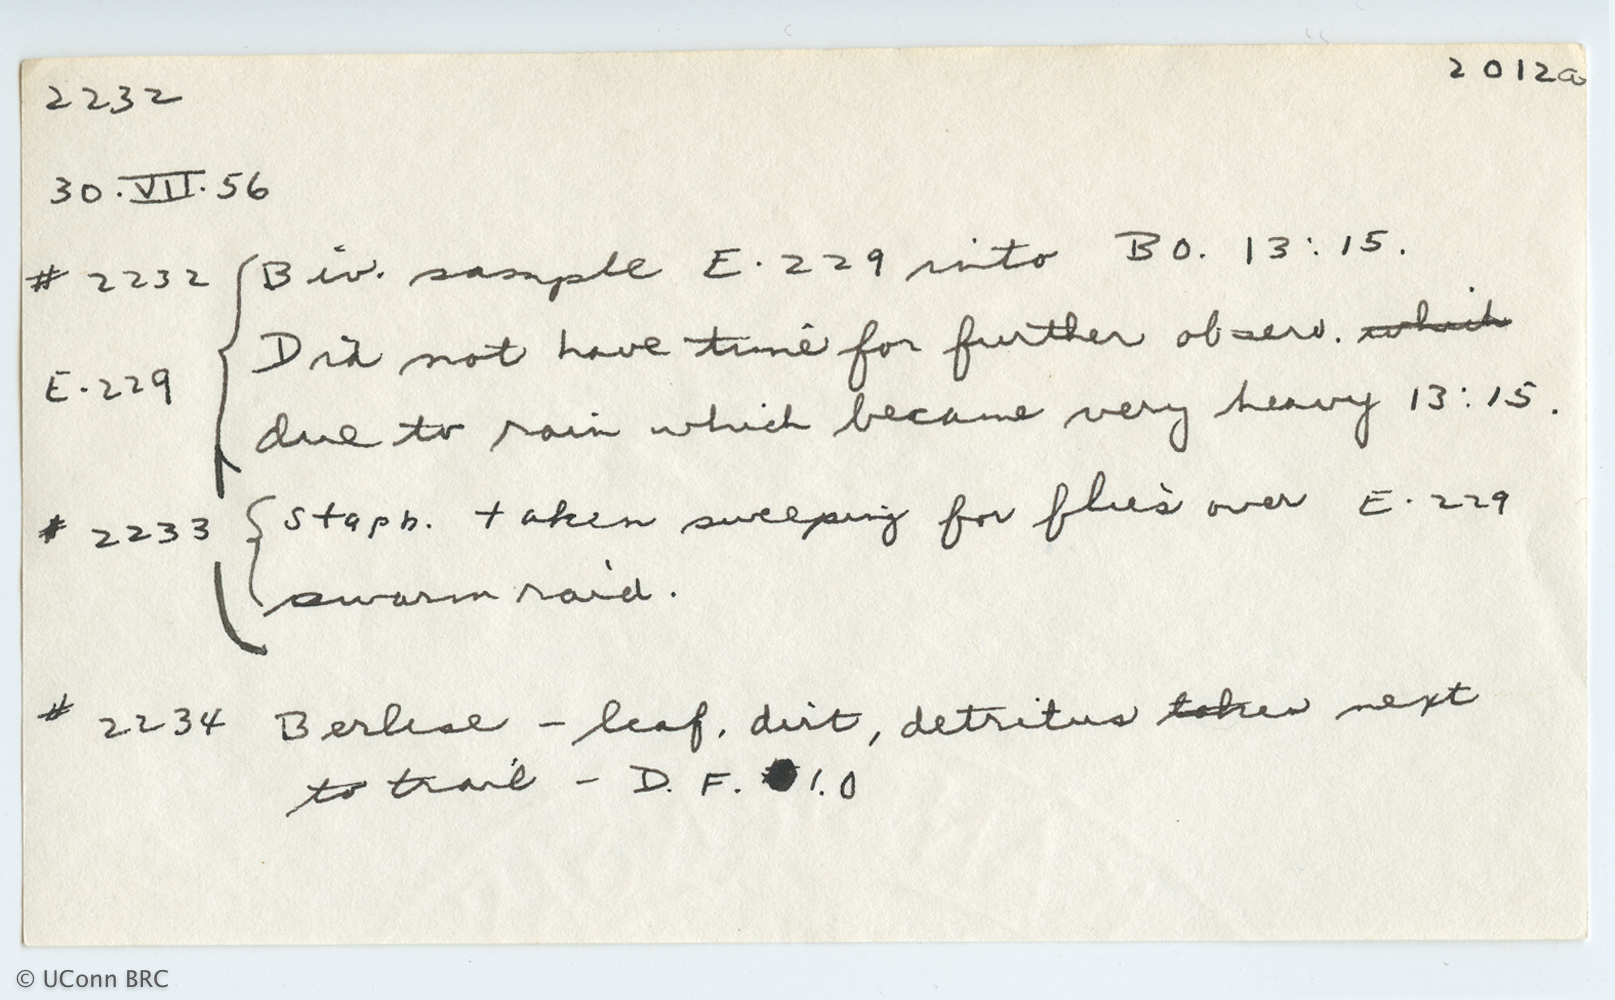 2232 2012a
30.VII.56
# 2232 Biv. sample E.229 into BO. 13:15.
Did not have time for further observ. which
E.229
due to rain which became very heavy 13:15.
# 2233 Staph. taken sweeping for flies over E.229
swarm raid.
# 2234 Berlese - leaf, dirt, detritus taken next
to trail - D.F. 1.0
© UConn BRC